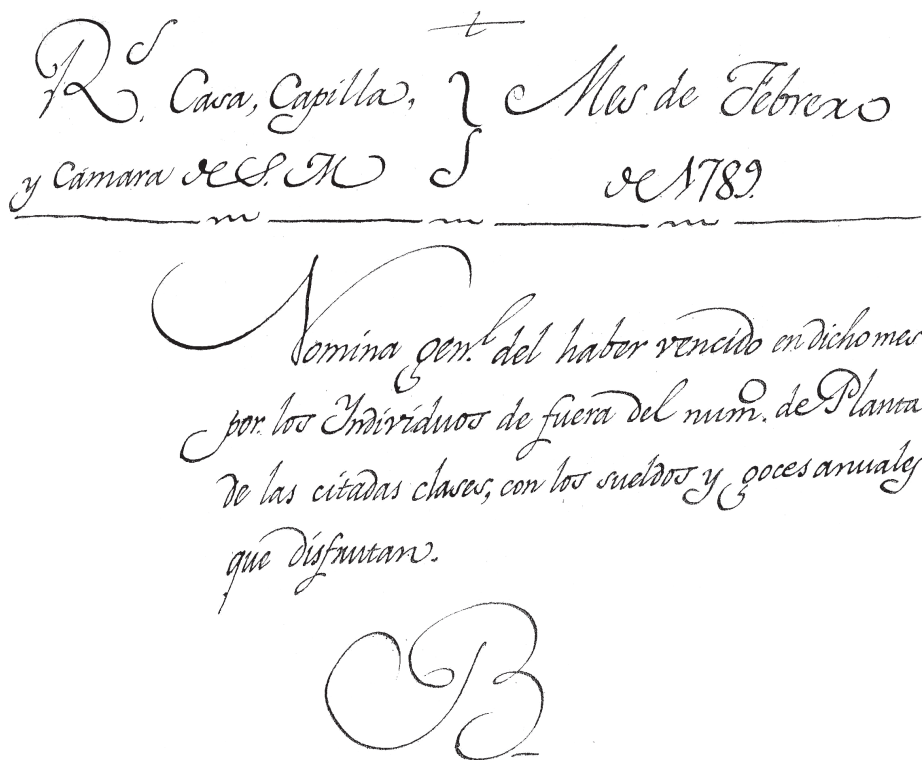 R.s Casa, Capilla, Mes de Febrero
y Cámara de S. M de 1789.
Nomina gen.l del haber vencido en dicho mes
por los Individuos de fuera del num.o de Planta
de las citadas clases, con los sueldos y goces anuales
que disfrutan.
B